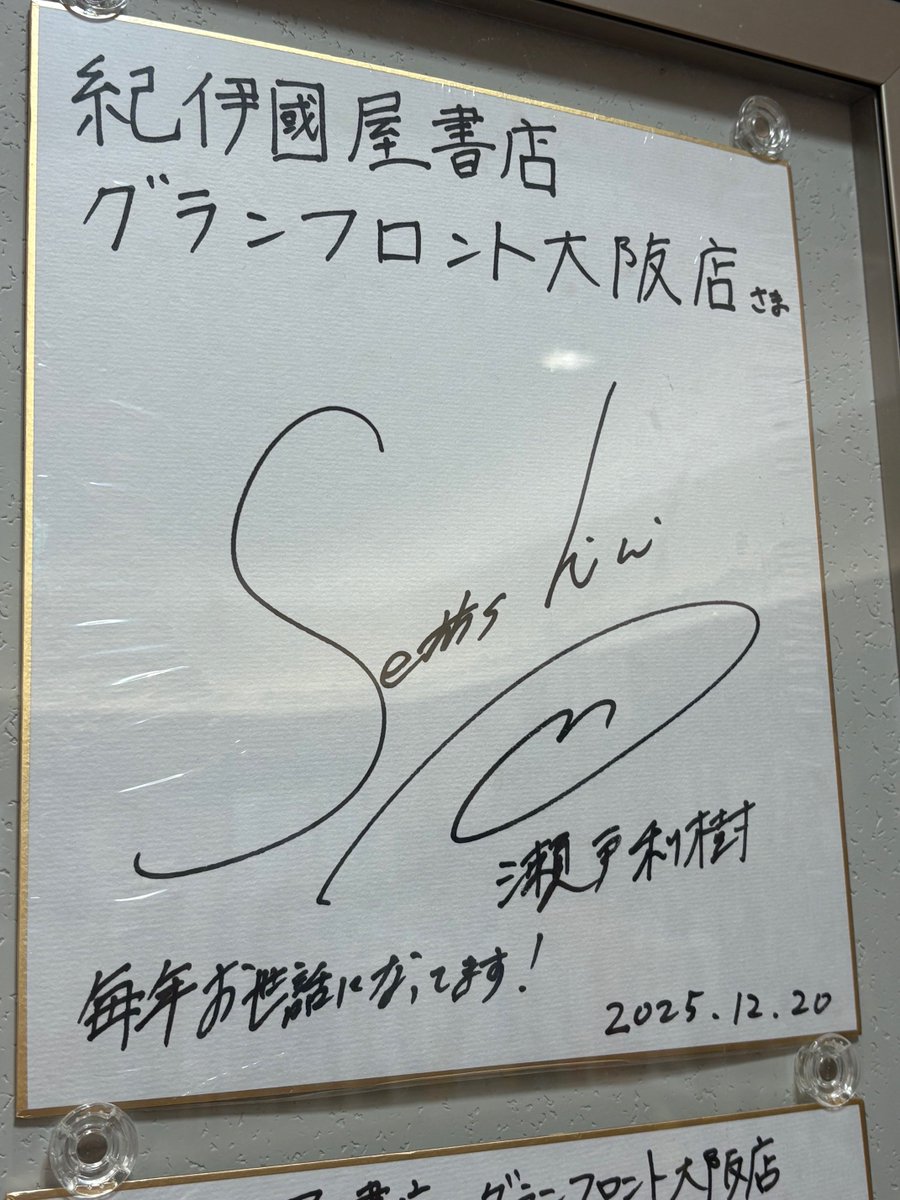 紀伊國屋書店
グランフロント大阪店さま
瀬戸利樹
毎年お世話になってます!
2025.12.20
書店 グランフロント大阪店